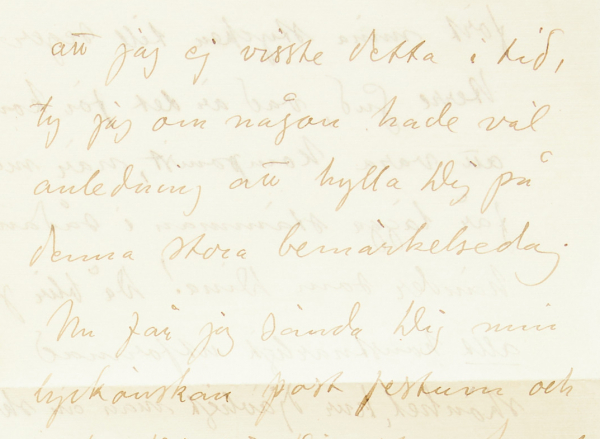 att jag ej visste detta i tid,
ty jag om någon hade väl
anledning att hylla Dig på
denna stora bemärkelsedag.
Nu får jag sända Dig min
lyckönskan post festum och